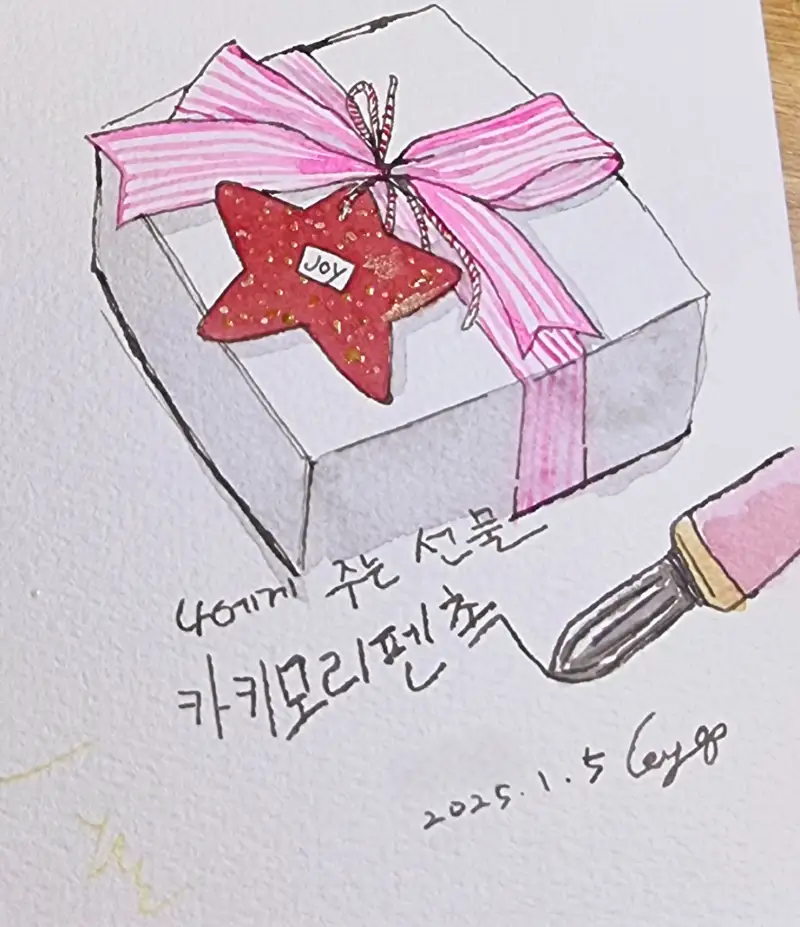 JOY
나에게 주는 선물
카키모리펜촉
2025.1.5